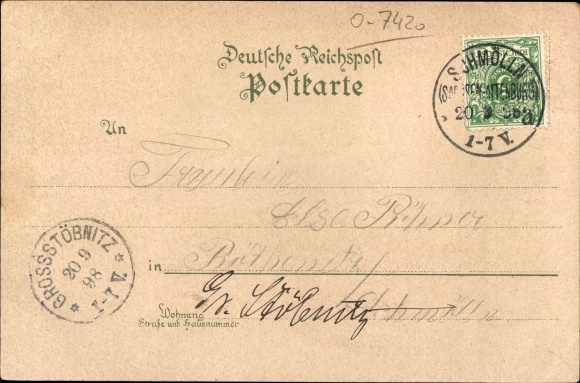 0-7420
Deutsche Reichspost
Postkarte
SCHMÖLLN
(SACHSEN-ALTENBURG)
20 9 98
1-7 V.
An
Fräulein
Else Röhner
in Röthenitz
Gr. Stöbnitz Schmölln
Wohnung
Straße und Hausnummer
GROSSSTÖBNITZ
20 9
98
1-7 V.